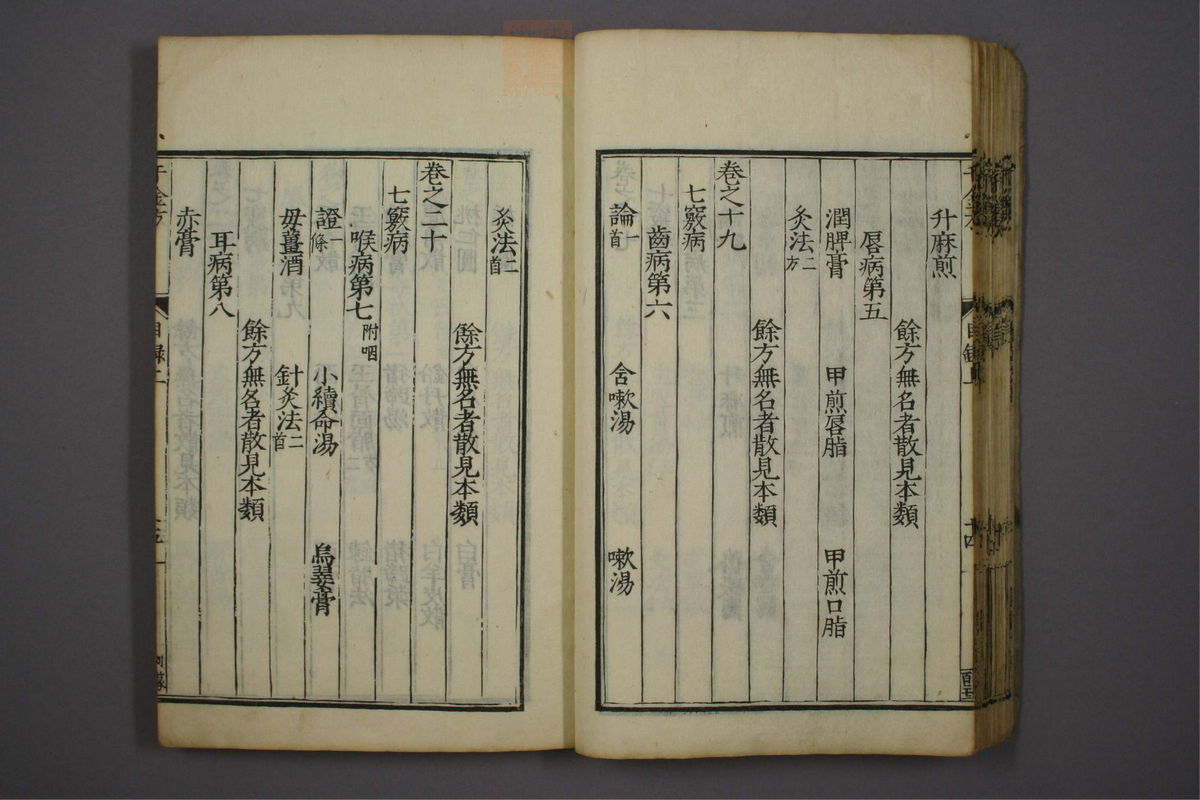 升麻煎
餘方無名者散見本類
唇病第五
潤脾膏 甲煎唇脂 甲煎口脂
灸法二方
餘方無名者散見本類
卷之十九
七竅病
齒病第六
論一首 含嗽湯 嗽湯
灸法二首
餘方無名者散見本類
卷之二十
七竅病
喉病第七附咽
證一條 小續命湯 烏翣膏
母薑酒 針灸法二首
餘方無名者散見本類
耳病第八
赤膏
千金方 目録二